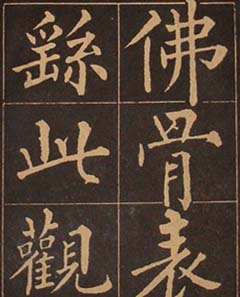 佛骨表
繇此觀